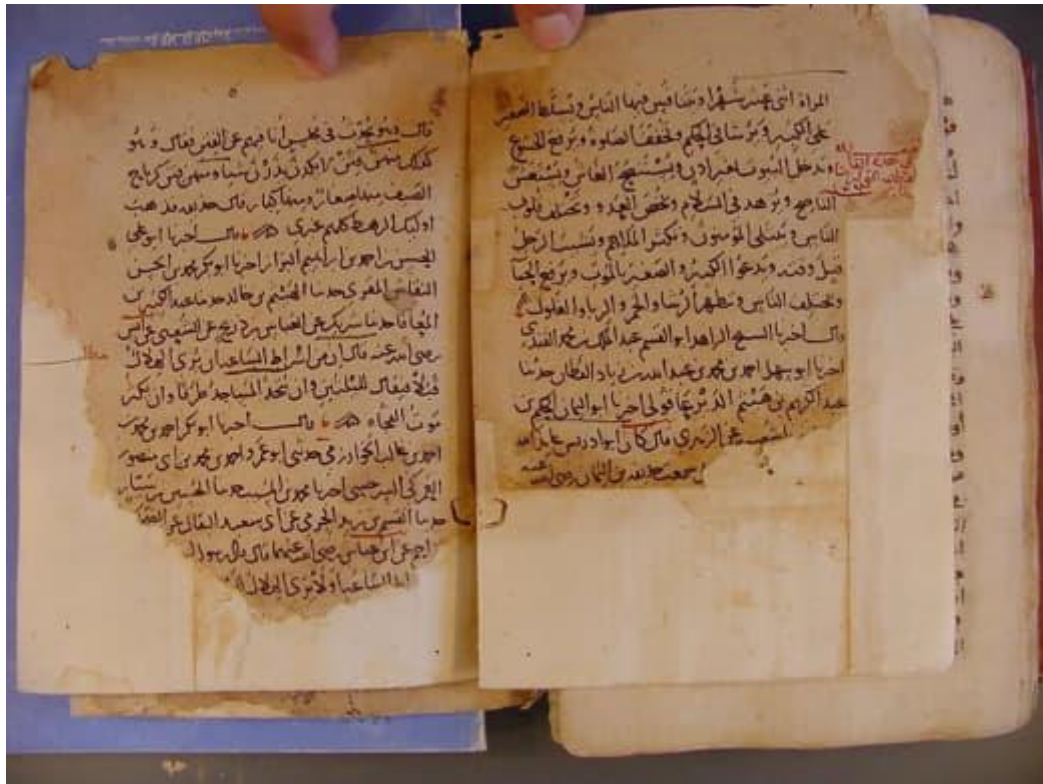 المراة اثنى عشر شهرا وتنافس فيها الناس وتسلط الصغير
على الكبير ويرشا في الحكم وتخفف الصلوة ويرفع الخشع
وتدخل البيوت بغير اذن ويستنصح الغاش ويستغش
الناصح ويزهد في السلام وتخفض العهد وتختلف قلوب
الناس ويبتلى المؤمنون وتكثر الملاهي وتشبب الرجل
قبل وقته وتدعوا الكبير والصغير بالموت ويرفع الحيا
وتختلف الناس وتظهر الرشا والخمر والربا والغلول
قال اخبرنا الشيخ الزاهد ابو القسم عبد الملك بن محمد
اخبرنا ابو سهل احمد بن محمد بن عبد الله بن زياد القطان حدثنا
عبد الكريم بن هشيم الديرعاقولي اخبرنا ابو اليمان الحكم بن
شعيب عن الزهري قال كان ابو ادريس عايذ الله
سمعت حذيفة بن اليمان رضي الله عنه
قال وهو يحدث في مجلس انا فيهم عن الفتن فقال وهو
كذلك منهن فتن لا يكدن يذرن شيا ومنهن فتن كرياح
الصيف منها صغار ومنها كبار قال حذيفة فذهب
اوليك الرهط كلهم غيري قال اخبرنا ابو علي
الحسن بن احمد بن ابراهيم البزار اخبرنا ابو بكر محمد بن الحسن
النقاش المقري حدثنا الهيثم بن خالد حدثنا عبد الكبير بن
المعافا حدثنا شريك عن العباس بن ذريح عن الشعبي عن انس
رضي الله عنه قال ان من اشراط الساعة ان يرى الهلال
قبلا فيقال لليلتين وان تتخذ المساجد طرقا وان تكثر
موت الفجاه قال اخبرنا ابو بكر احمد بن محمد بن
احمد بن غالب الخوارزمي حدثني ابو عمرو احمد بن محمد بن ابي منصور
اخبرنا محمد بن المسيب حدثنا الحسين بن سيار
حدثنا القسم بن يزيد الجرمي عن ابي سعيد البقال عن الضحاك
عن ابن عباس رضي الله عنهما قال قال رسول
الساعة ولا يرى الهلال